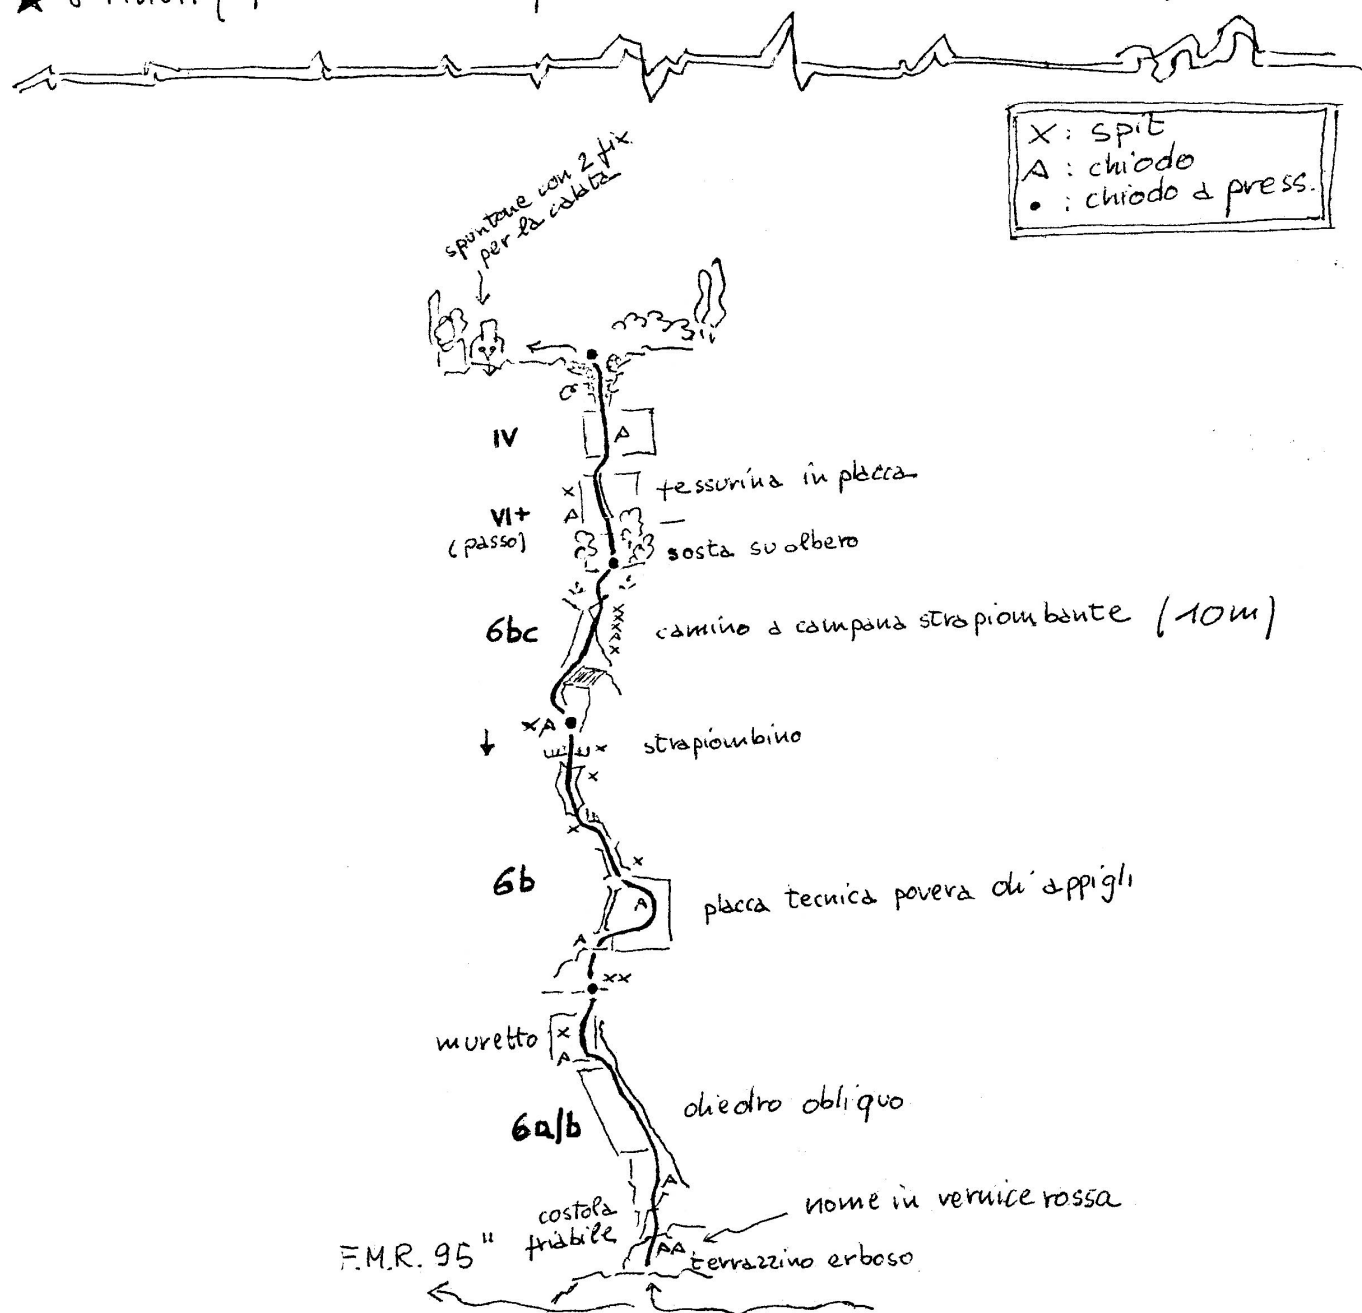 X : spit
A : chiodo
• : chiodo a press.
spuntone con 2 fix
per la calata
IV
A
X
fessurina in placca
VI+
A
(passo)
sosta su albero
6bc
camino a campana strapiombante (10m)
XA
X
strapiombino
X
X
X
6b
A
placca tecnica povera di appigli
A
XX
muretto
X
A
diedro obliquo
6a/b
A
nome in vernice rossa
costola
friabile
F.M.R. 95"
AA
terrazzino erboso